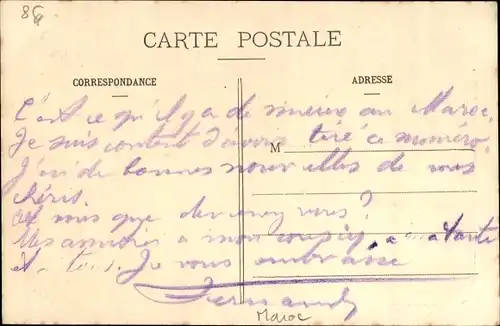 86
CARTE POSTALE
CORRESPONDANCE
ADRESSE
M
C'est ce qu'il y a de mieux au Maroc.
Je suis content d'avoir tiré ce numéro.
J'ai de bonnes nouvelles de mes
chéris.
et vous que devenez vous?
Mes amitiés à mon cousin, a
et Je vous embrasse
Fernand
Maroc